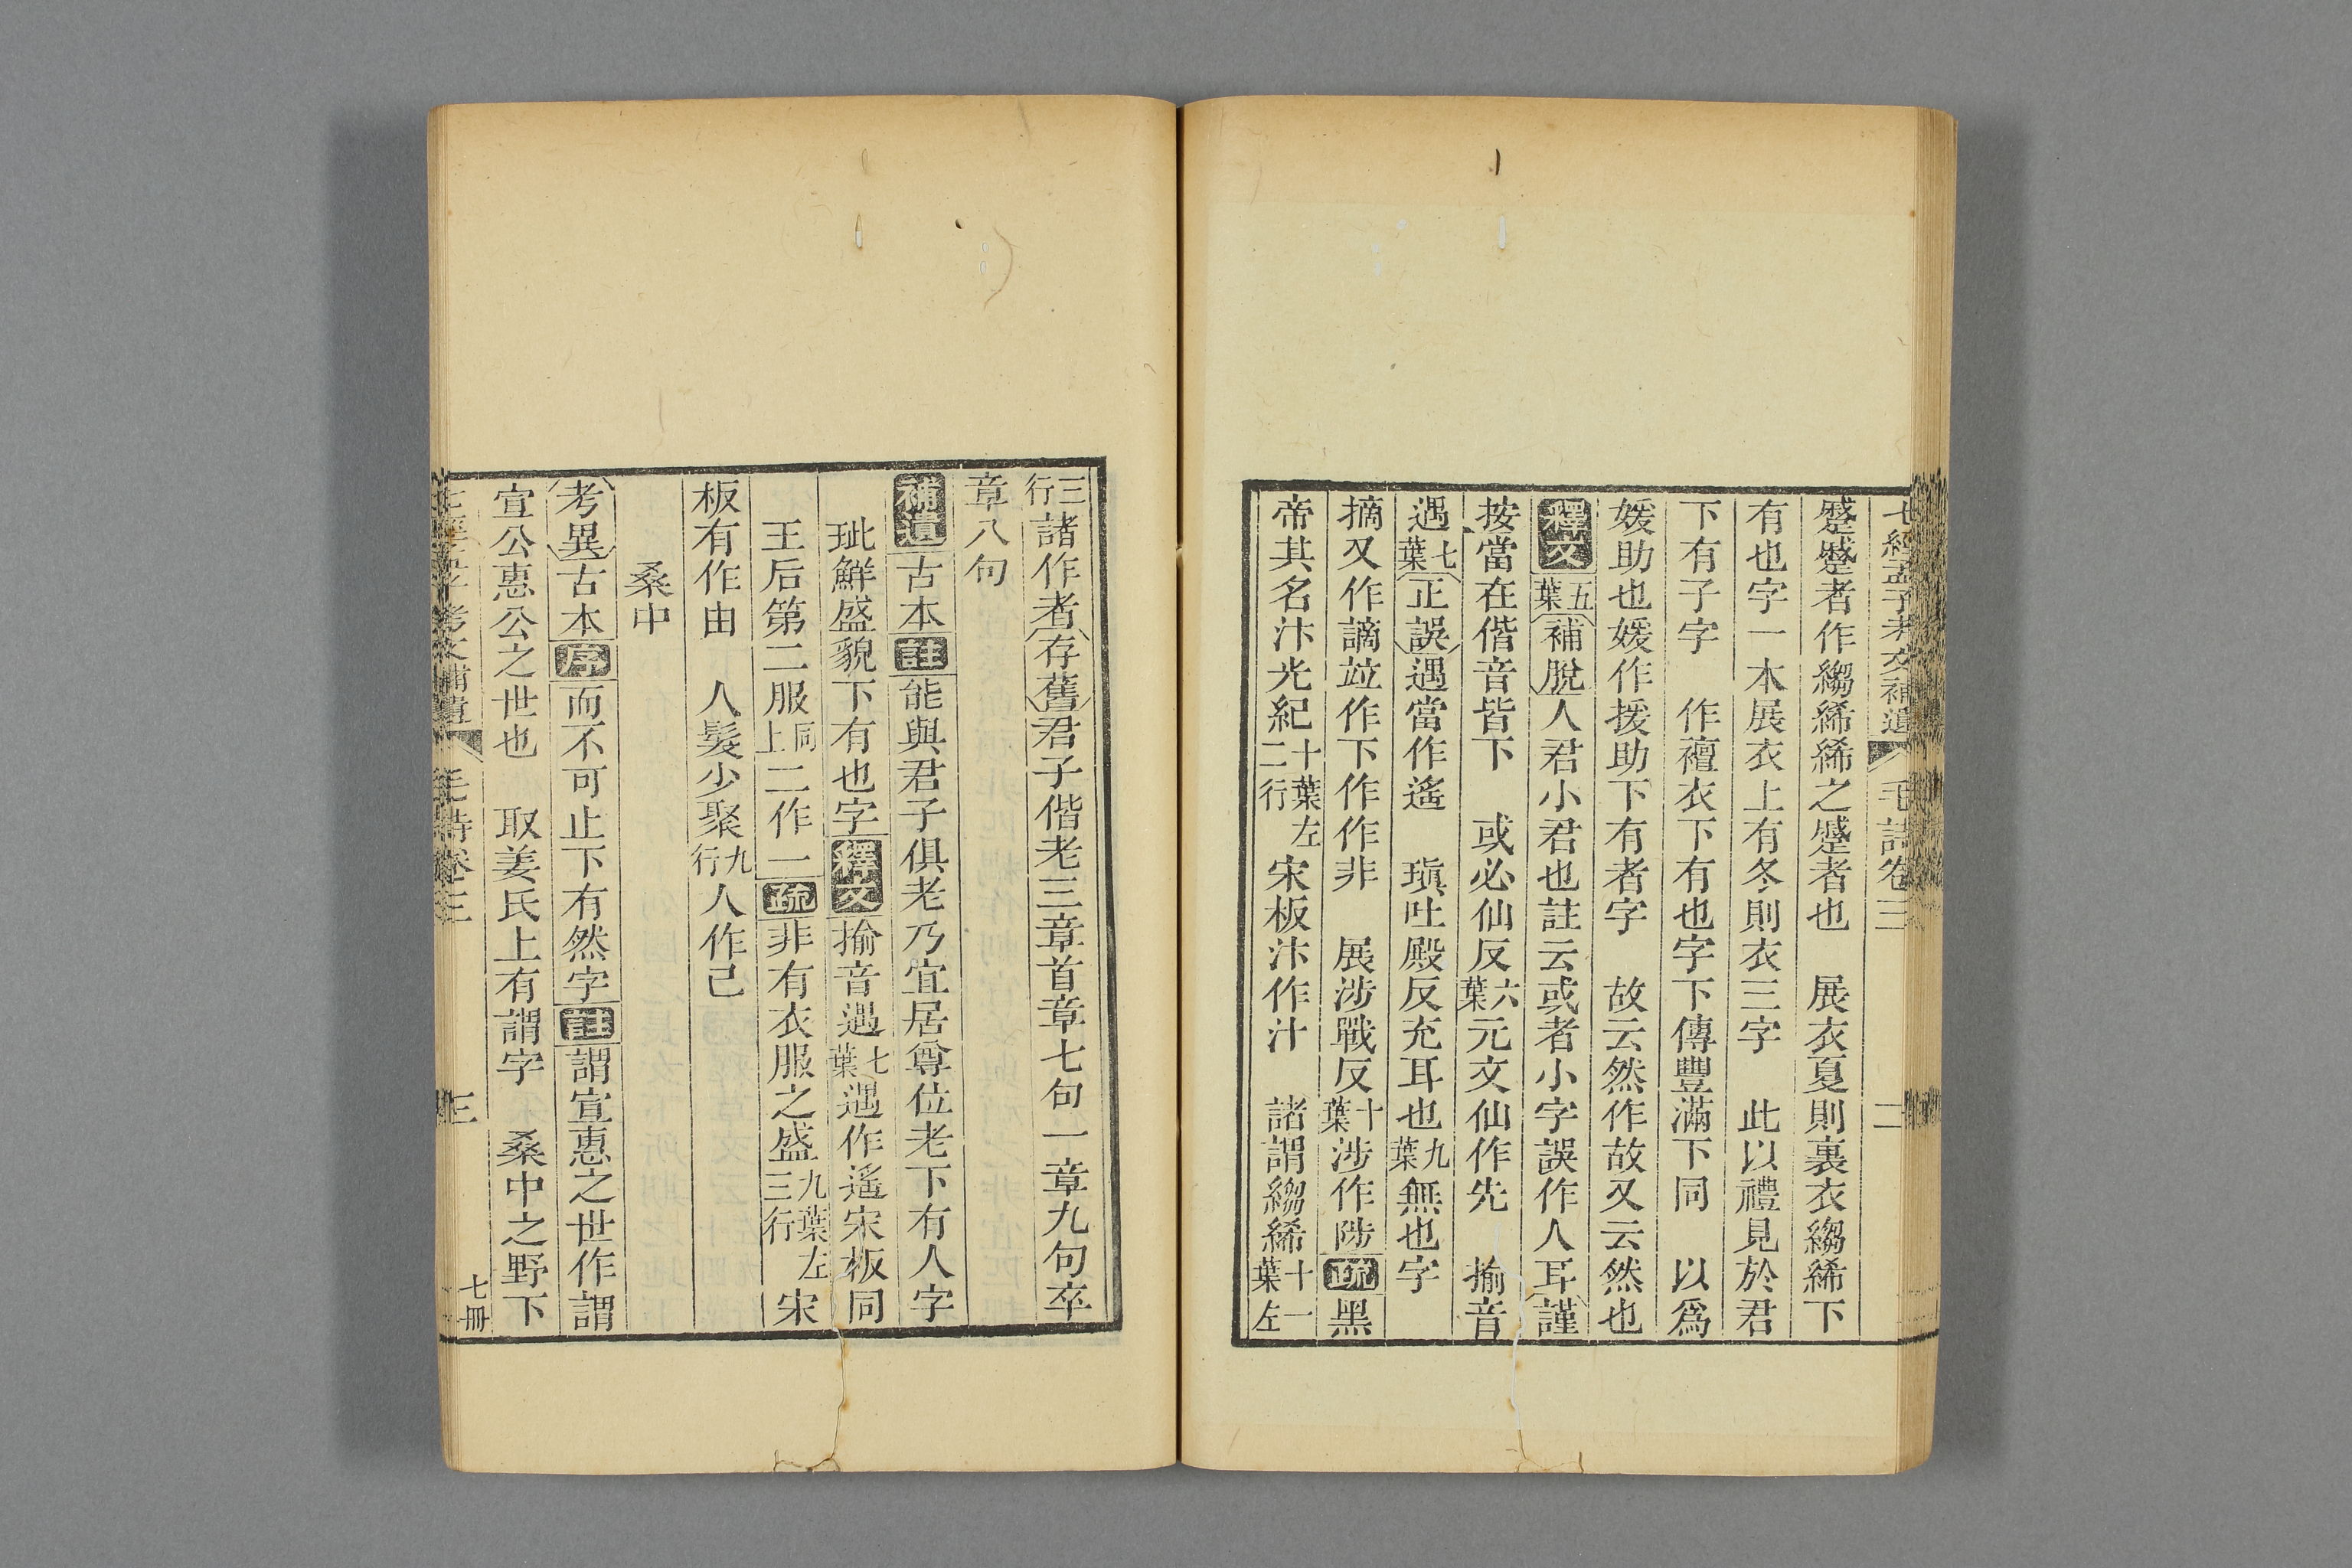 七經孟子考文補遺 毛詩卷三 二
蹙蹙者作縐絺絺之蹙者也 展衣夏則裏衣縐絺下
有也字一本展衣上有冬則衣三字 此以禮見於君
下有子字 作襢衣下有也字下傳豐滿下同 以爲
媛助也媛作援助下有者字 故云然作故又云然也
釋文五葉補脫人君小君也註云或者小字誤作人耳謹
按當在偕音皆下 或必仙反六葉元文仙作先 揄音
遇七葉正誤遇當作遙 瑱吐殿反充耳也九葉無也字
摘又作謫竝作下作作非 展涉戰反十葉涉作陟疏黑
帝其名汴光紀十葉左二行宋板汴作汁 諸謂縐絺十一葉左
三行諸作者存舊君子偕老三章首章七句一章九句卒
章八句
補遺古本註能與君子俱老乃宜居尊位老下有人字
玼鮮盛貌下有也字釋文揄音遇七葉遇作遙宋板同
王后第二服同上二作一疏非有衣服之盛九葉左三行宋
板有作由 人髮少聚九行人作己
桑中
考異古本序而不可止下有然字註謂宣惠之世作謂
宣公惠公之世也 取姜氏上有謂字 桑中之野下
毛詩卷三 三 七冊